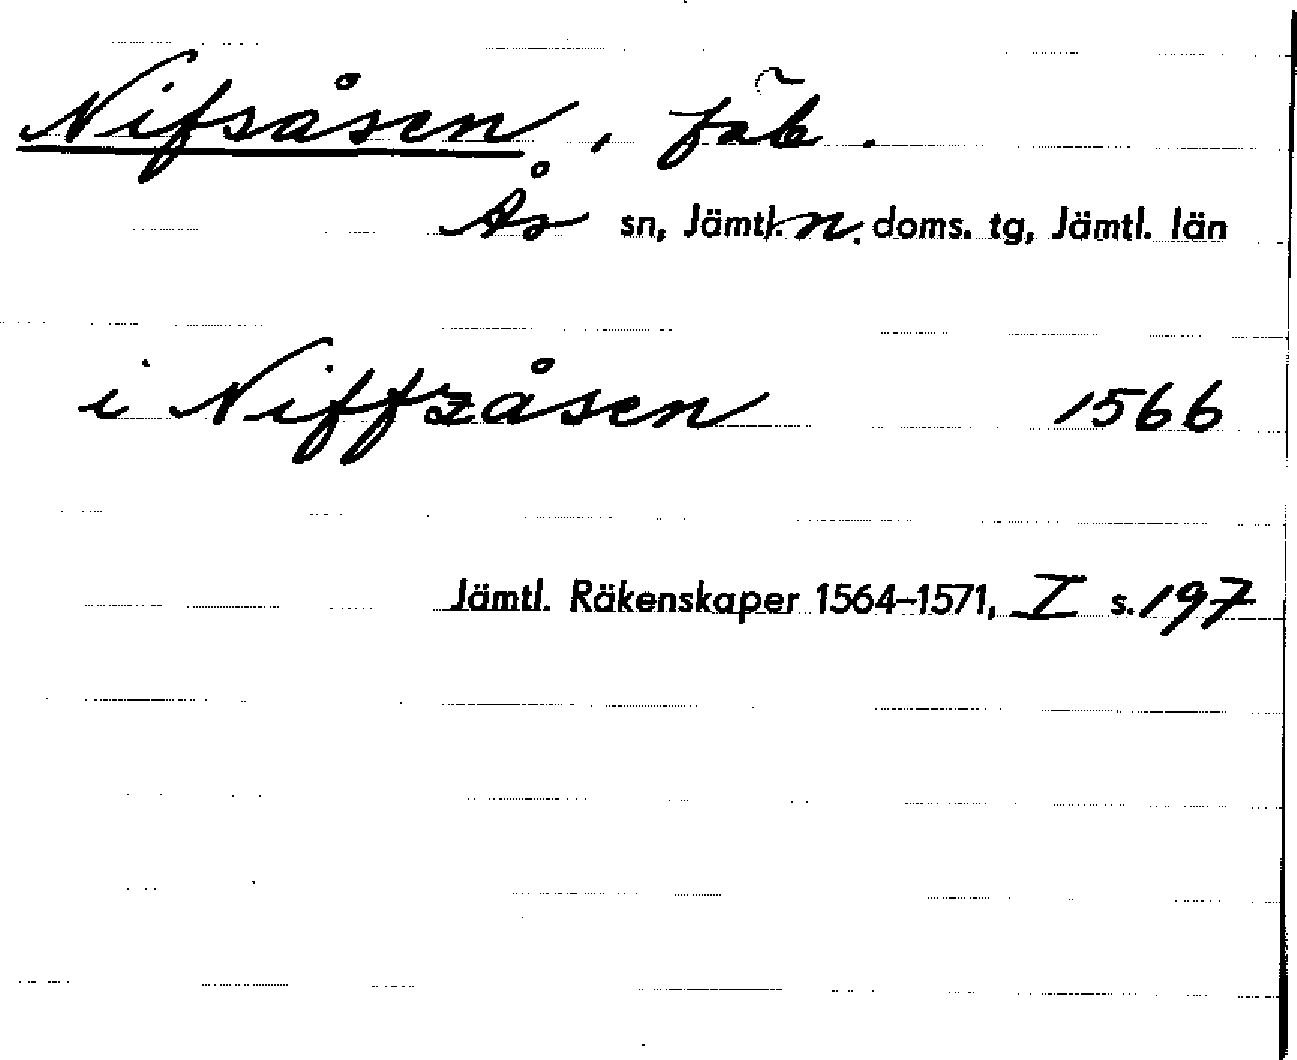 Nifsåsen, fäb.
Ås sn, Jämtl. n. doms. tg, Jämtl. län
i Niffzåsen 1566
Jämtl. Räkenskaper 1564–1571, I s. 197